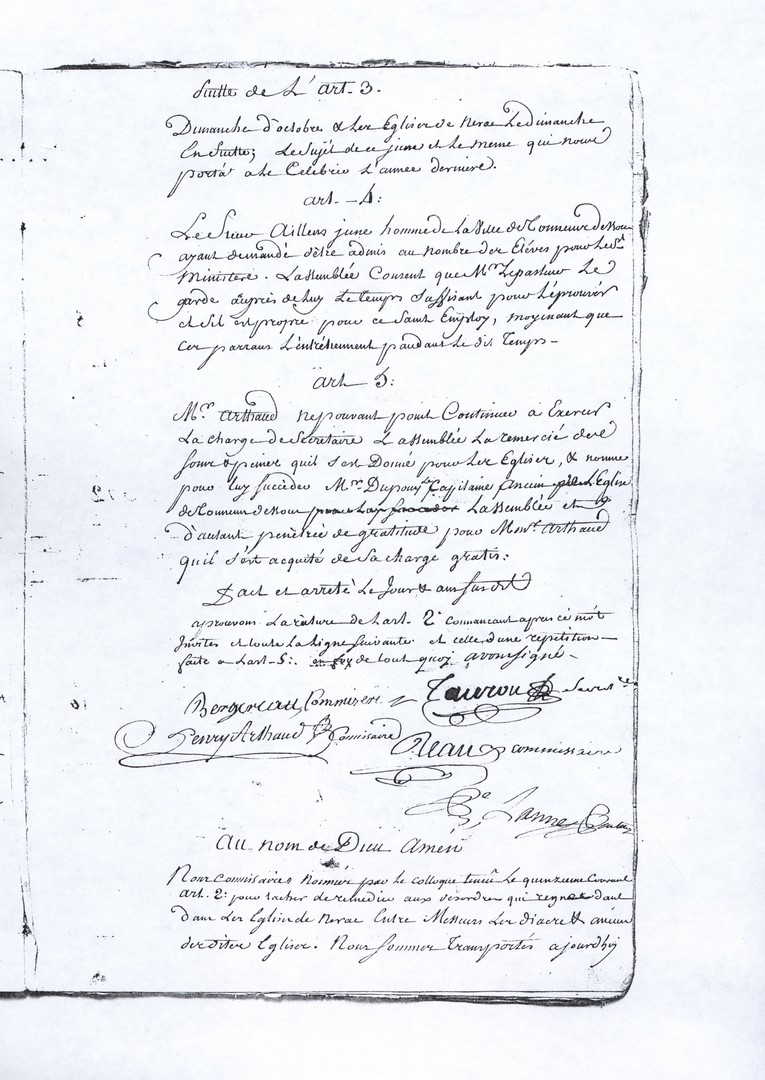 Suitte de L'art. 3.
Dimanche d'octobre & Les Eglises de Nerac Le dimanche
En Suitte; Le Sujet de ce june est Le meme qui nous
porta a Le Celebrer L'année derniere.
art. - 4:
Le Sieur Aillens june homme de La Ville de Tonneins dessous
ayant demandé d'être admis au nombre des Elèves pour Le St
Ministere. L'assemblée Consent que Mr. Le pasteur Le
garde auprès de luy Le temps Suffisant pour L'éprouver
et Sil est propre pour ce Saint Employ, moyenant que
Ces parrans L'entretiennent pandant Le dit Temps -
art 5:
Mr. Arthaud ne pouvant point Continuer à Exercer
La charge de Secretaire L'assemblée La remercié des
soins & peines quil s'est Donné pour Les Eglises, & nomme
pour luy Succéder Mr. Dupouy Capitaine Ancien L'Eglise
de Tonneins dessous pour Luy Succeder L'assemblée est
d'autant penétrée de gratitude pour Monsr. Arthaud
quil s'est acquité de Sa charge gratis:
Fait et arreté Le Jour & an susdit
aprouvons La rature de L'art. 2e commancant apres ce mot
Invités et toute La Ligne Suivante et celle d'une repetition
faite a L'art - 5: en foy de tout quoy avons signé -
Bergereau, Commisere
Henry Arthaud Commisaire
commissaire
Au nom de Dieu Amen
Nous Commissaires Nommés par le colloque tenue Le quinzieme Courant
art. 2: pour tacher de remedier aux desordres qui regnent dans
dans Les Eglises de Nerac Entre Messieurs Les diacres & anciens
des dites Eglises. Nous Sommes Transportés ajourdhuy